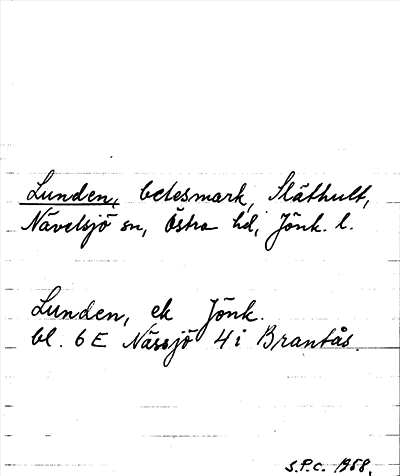 Lunden, betesmark, Släthult,
Nävelsjö sn, Östra hd, Jönk. l.
Lunden, ek Jönk.
bl. 6E Nässjö 4i Brantås.
S.P.C. 1958.